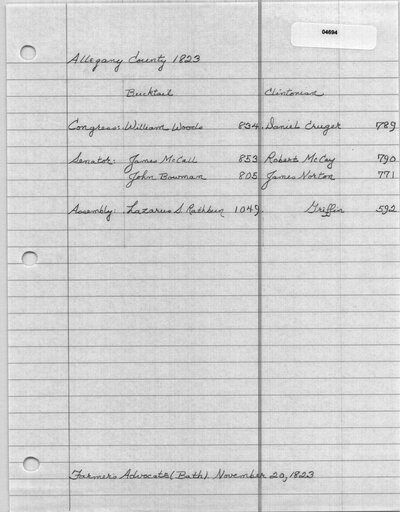 04694
Allegany County 1823
Bucktail Clintonian
Congress: William Woods 834. Daniel Cruger 789
Senator: James McCall 853 Robert McCay 790
John Bowman 805 James Norton 771
Assembly: Lazarus S. Rathbun 1049. Griffin 592
Farmers Advocate (Bath) November 20, 1823